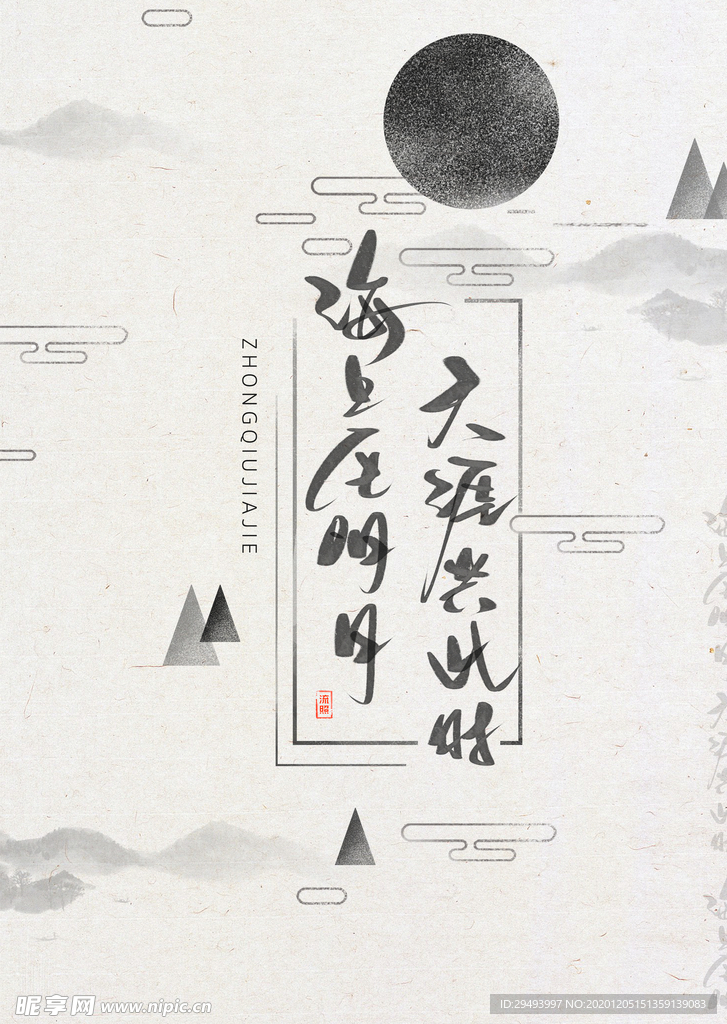 海上生明月
天涯共此时
ZHONGQIUJIAJIE
流照
昵享网 www.nipic.cn
ID:29493997 NO:20201205151359139083